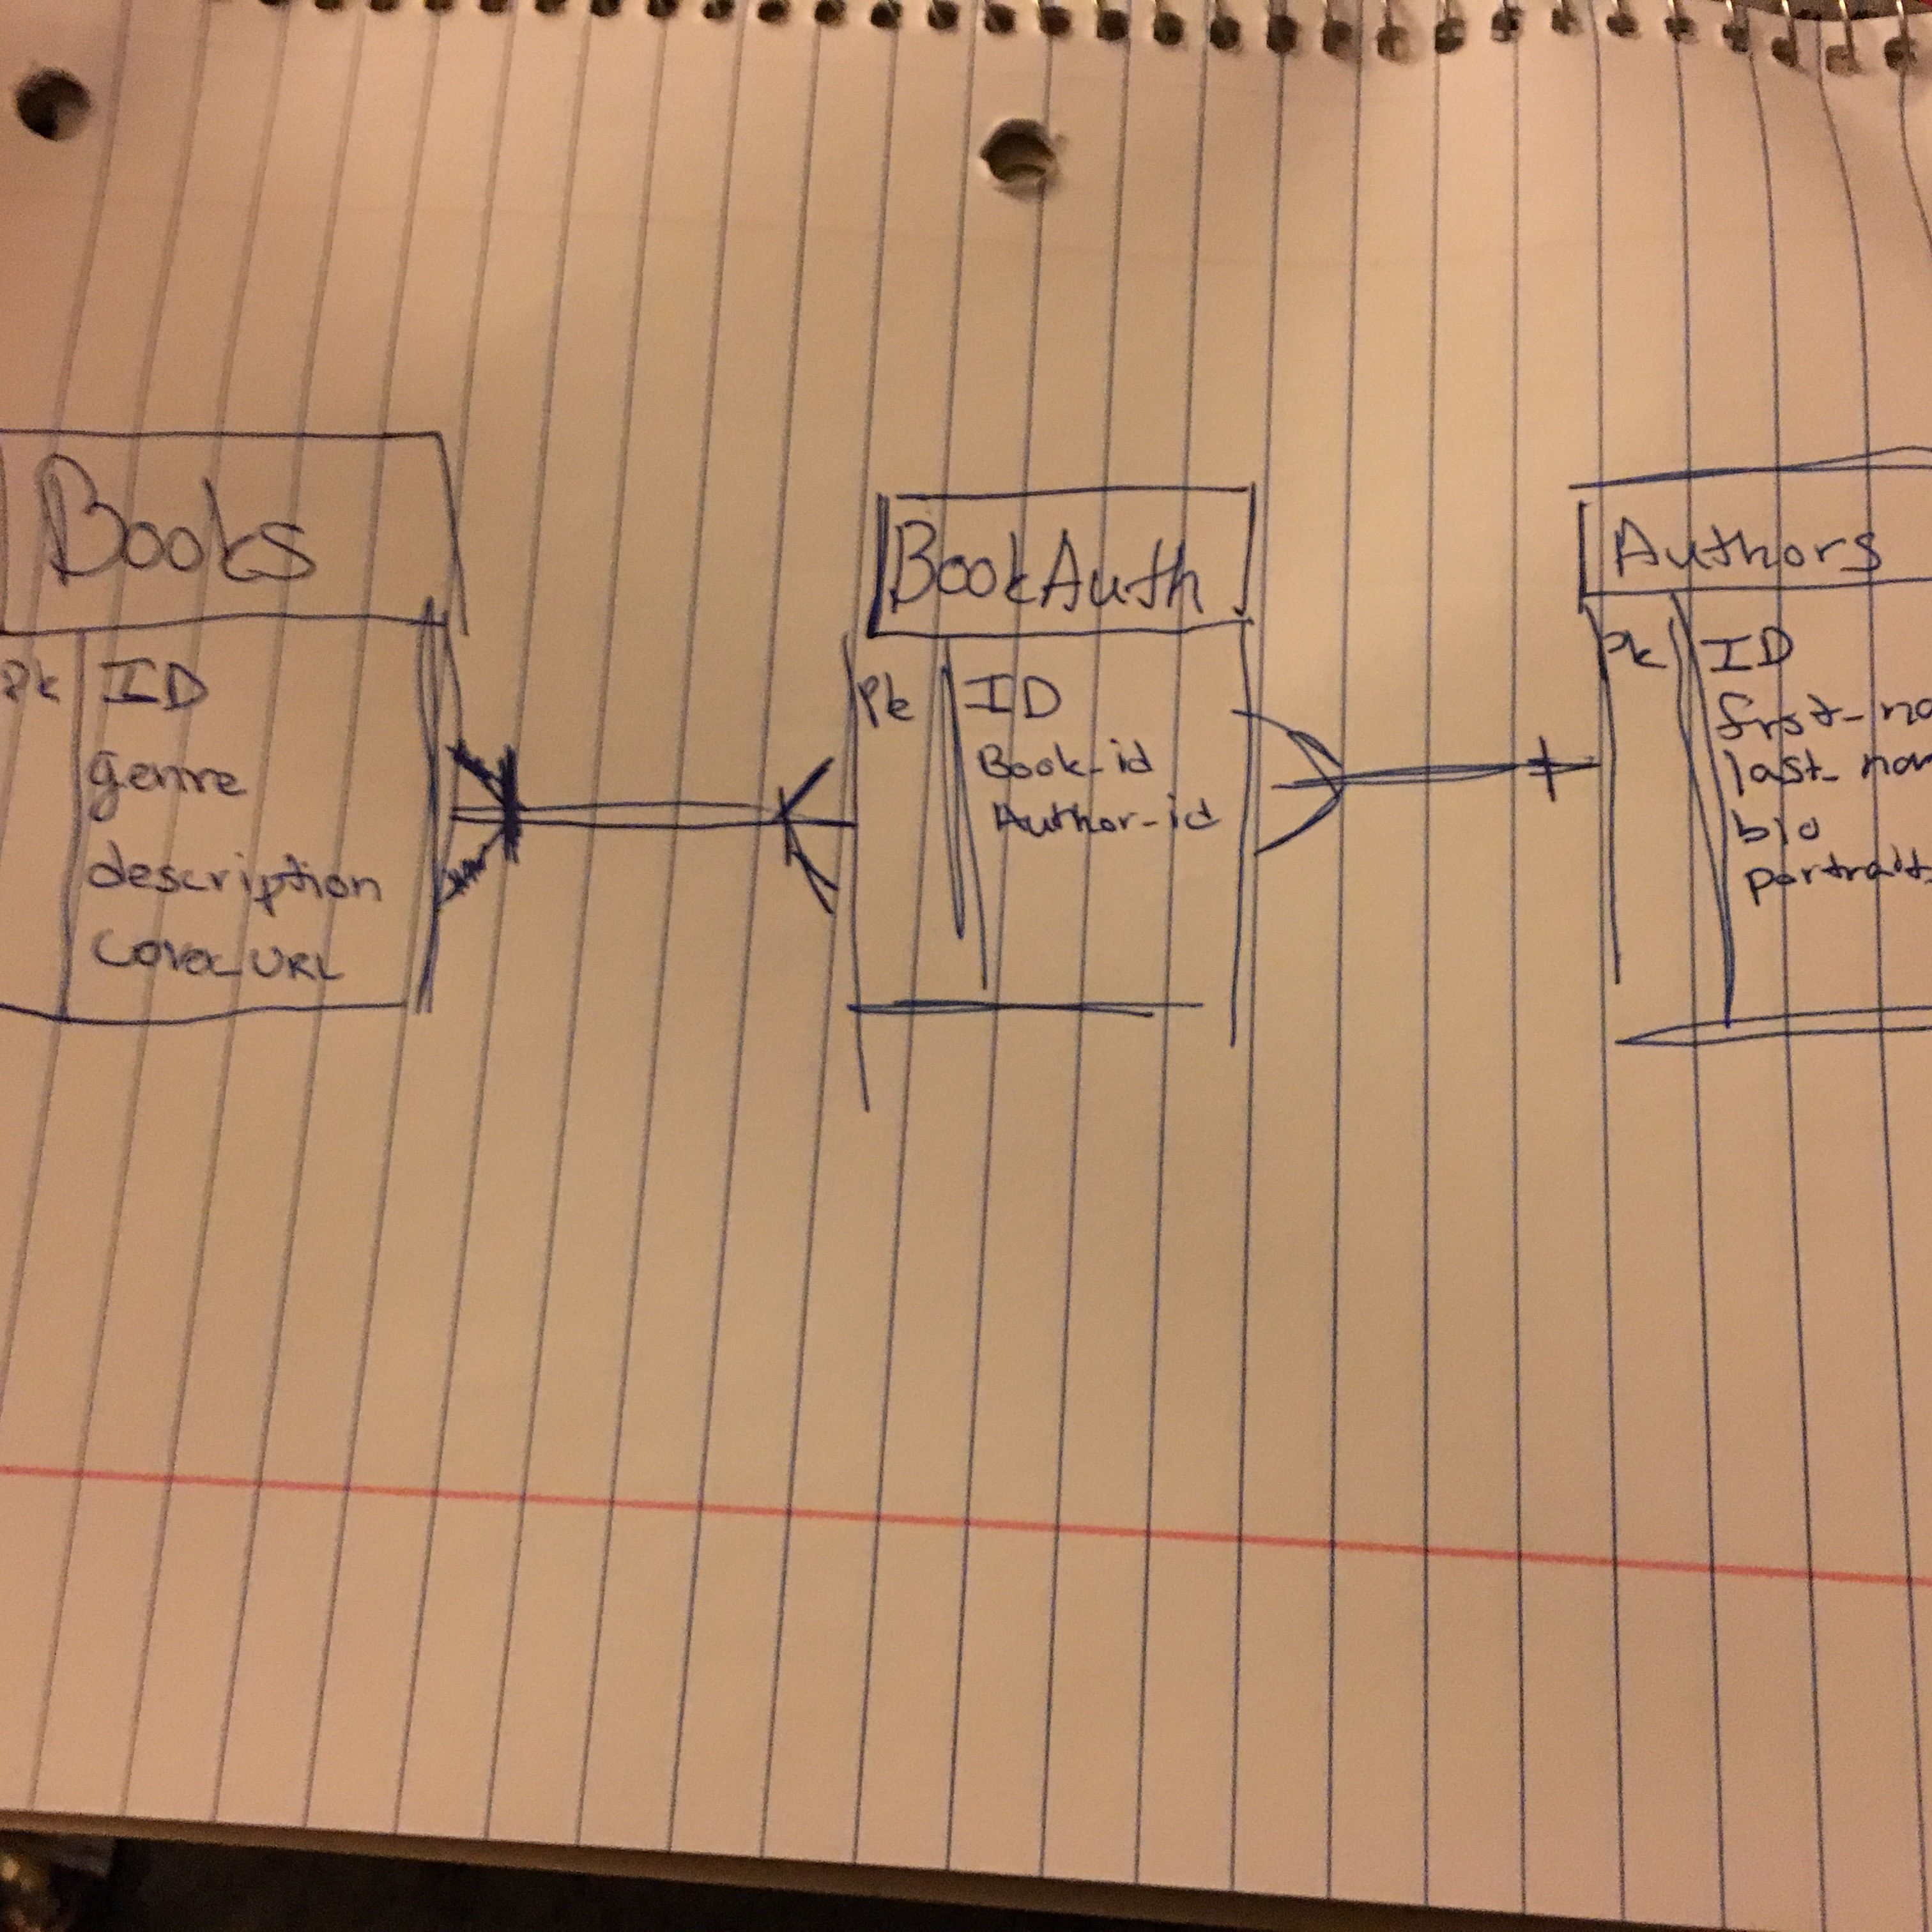 Books
Pk ID
genre
description
Cover_URL
BookAuth
Pk ID
Book_id
Author_id
Authors
Pk ID
first_na
last_nam
bio
portrait